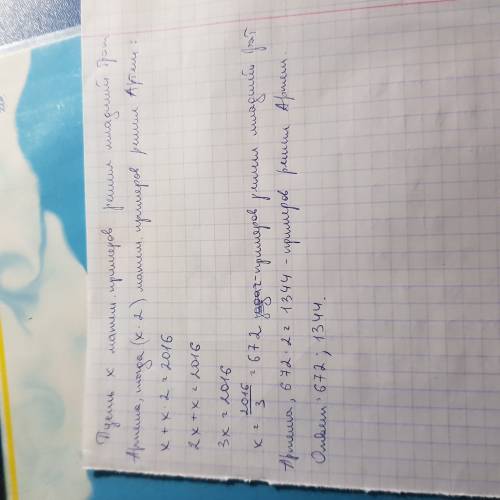 Пусть x матем. примеров решил младший брат
Артема, тогда (x·2) матем. примеров решил Артем:
x + x·2 = 2016
2x + x = 2016
3x = 2016
x = 2016/3 = 672 - примеров решил младший брат
Артема, 672·2 = 1344 - примеров решил Артем.
Ответ: 672; 1344.